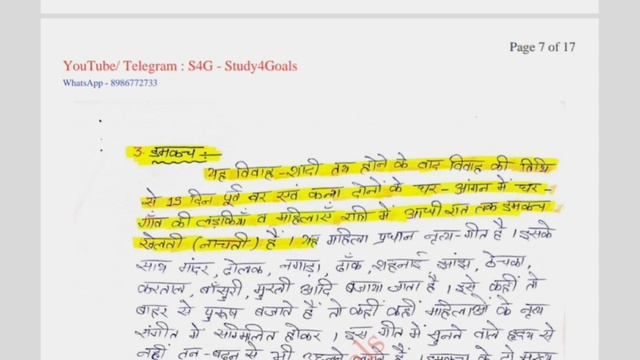 Page 7 of 17
YouTube/ Telegram : S4G - Study4Goals
WhatsApp - 8986772733
3. डमकच :-
यह विवाह-शादी तय होने के बाद विवाह की तिथि
से 15 दिन पूर्व वर एवं कन्या दोनों के घर-आंगन में घर-
गाँव की लड़कियाँ व महिलाएँ रात्रि में आधी रात तक डमकच
खेलती (नाचती) हैं । यह महिला प्रधान नृत्य-गीत है । इसके
साथ मांदर, ढोलक, नगाड़ा, ढाँक, शहनाई झांझ, ठेचका,
करताल, बाँसुरी, मुरली आदि बजाया जाता है । इसे कहीं तो
बाहर से पुरुष बजाते हैं तो कहीं कहीं महिलाओं के नृत्य
संगीत में सम्मिलित होकर । इस गीत में सुनने वाले हृदय से
नहीं तन-बदन से भी